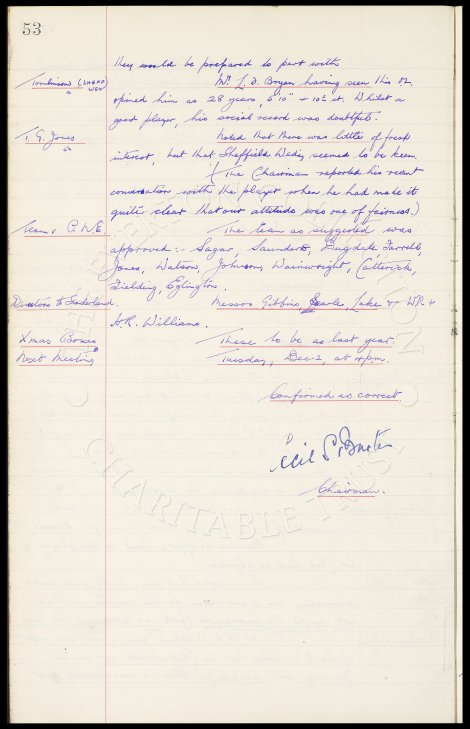 53
they would be prepared to part with
Tomlinson (SHEFF WED)
Mr. L. D. Bryen having seen this o.l.
opined him as 28 years, 5'10" + 10½ st. Whilst a
good player, his social record was doubtful.
T. G. Jones
Noted that there was little of fresh
interest, but that Sheffield Weds, seemed to be keen.
(The Chairman reported his recent
conversation with the player when he had made it
quite clear that our attitude was one of fairness.)
Team v P.N.E.
The team as suggested was
approved:- Sagar, Saunders, Dugdale Farrell,
Jones, Watson, Johnson, Wainwright, Catterick,
Fielding, Eglington.
Directors to Sunderland.
Messrs Gibbins, Searle, Lake + WR +
H.R. Williams.
Xmas Boxes
These to be as last year.
Next Meeting
Tuesday, Dec 2, at 4pm.
Confirmed as correct.
Cecil S. Baxter
Chairman.
CHARITABLE TRUST